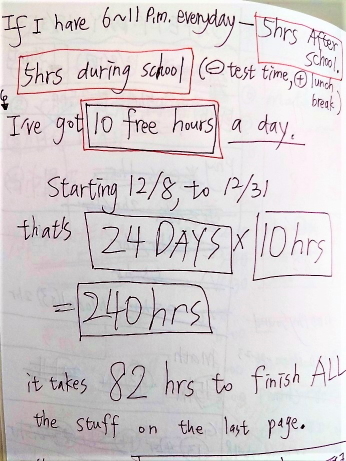 If I have 6~11 P.m. everyday — 5hrs After school.
5hrs during school (⊖ test time, ⊕ lunch break)
I've got 10 free hours a day.
Starting 12/8, to 12/31
that's 24 DAYS × 10hrs
= 240hrs
it takes 82 hrs to finish ALL
the stuff on the last page.